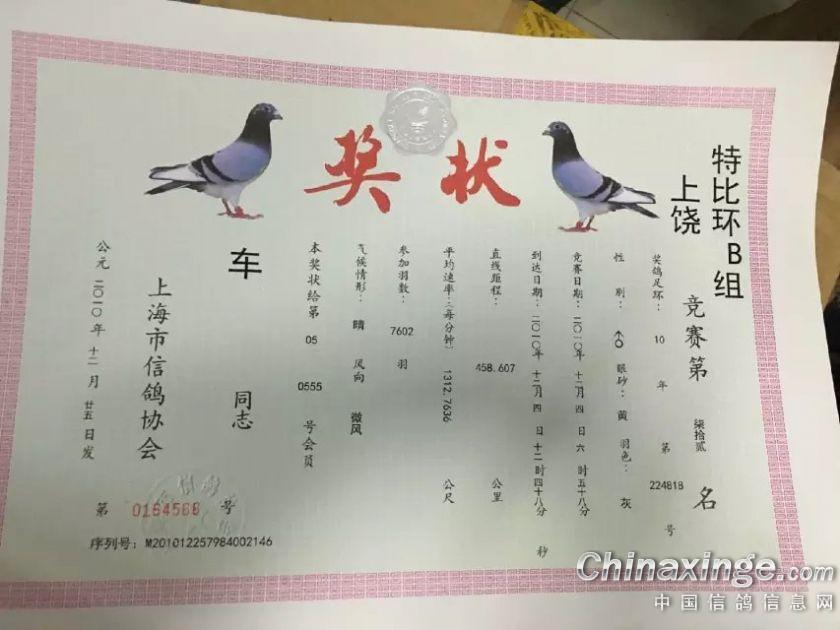 奖状
特比环B组
上饶 竞赛第 柒拾贰 名
奖鸽足环: 10 年 第 224818 号
性 别: ♂ 眼砂: 黄 羽色: 灰
竞赛日期: 二〇一〇年 十二月 四 日 六 时 五十八分
到达日期: 二〇一〇年 十二月 四 日 十二 时 四十八分 秒
直线距程: 458.607 公里
平均速率:(每分钟) 1312.7636 公尺
参加羽数: 7602 羽
气候情形: 晴 风向 微风
本奖状给第 05 0555 号会员
车 同志
上海市信鸽协会
公元 二〇一〇年 十二 月 廿五 日发
第 0164568 号
序列号: M201012257984002146
Chinaxinge.com
中国信鸽信息网